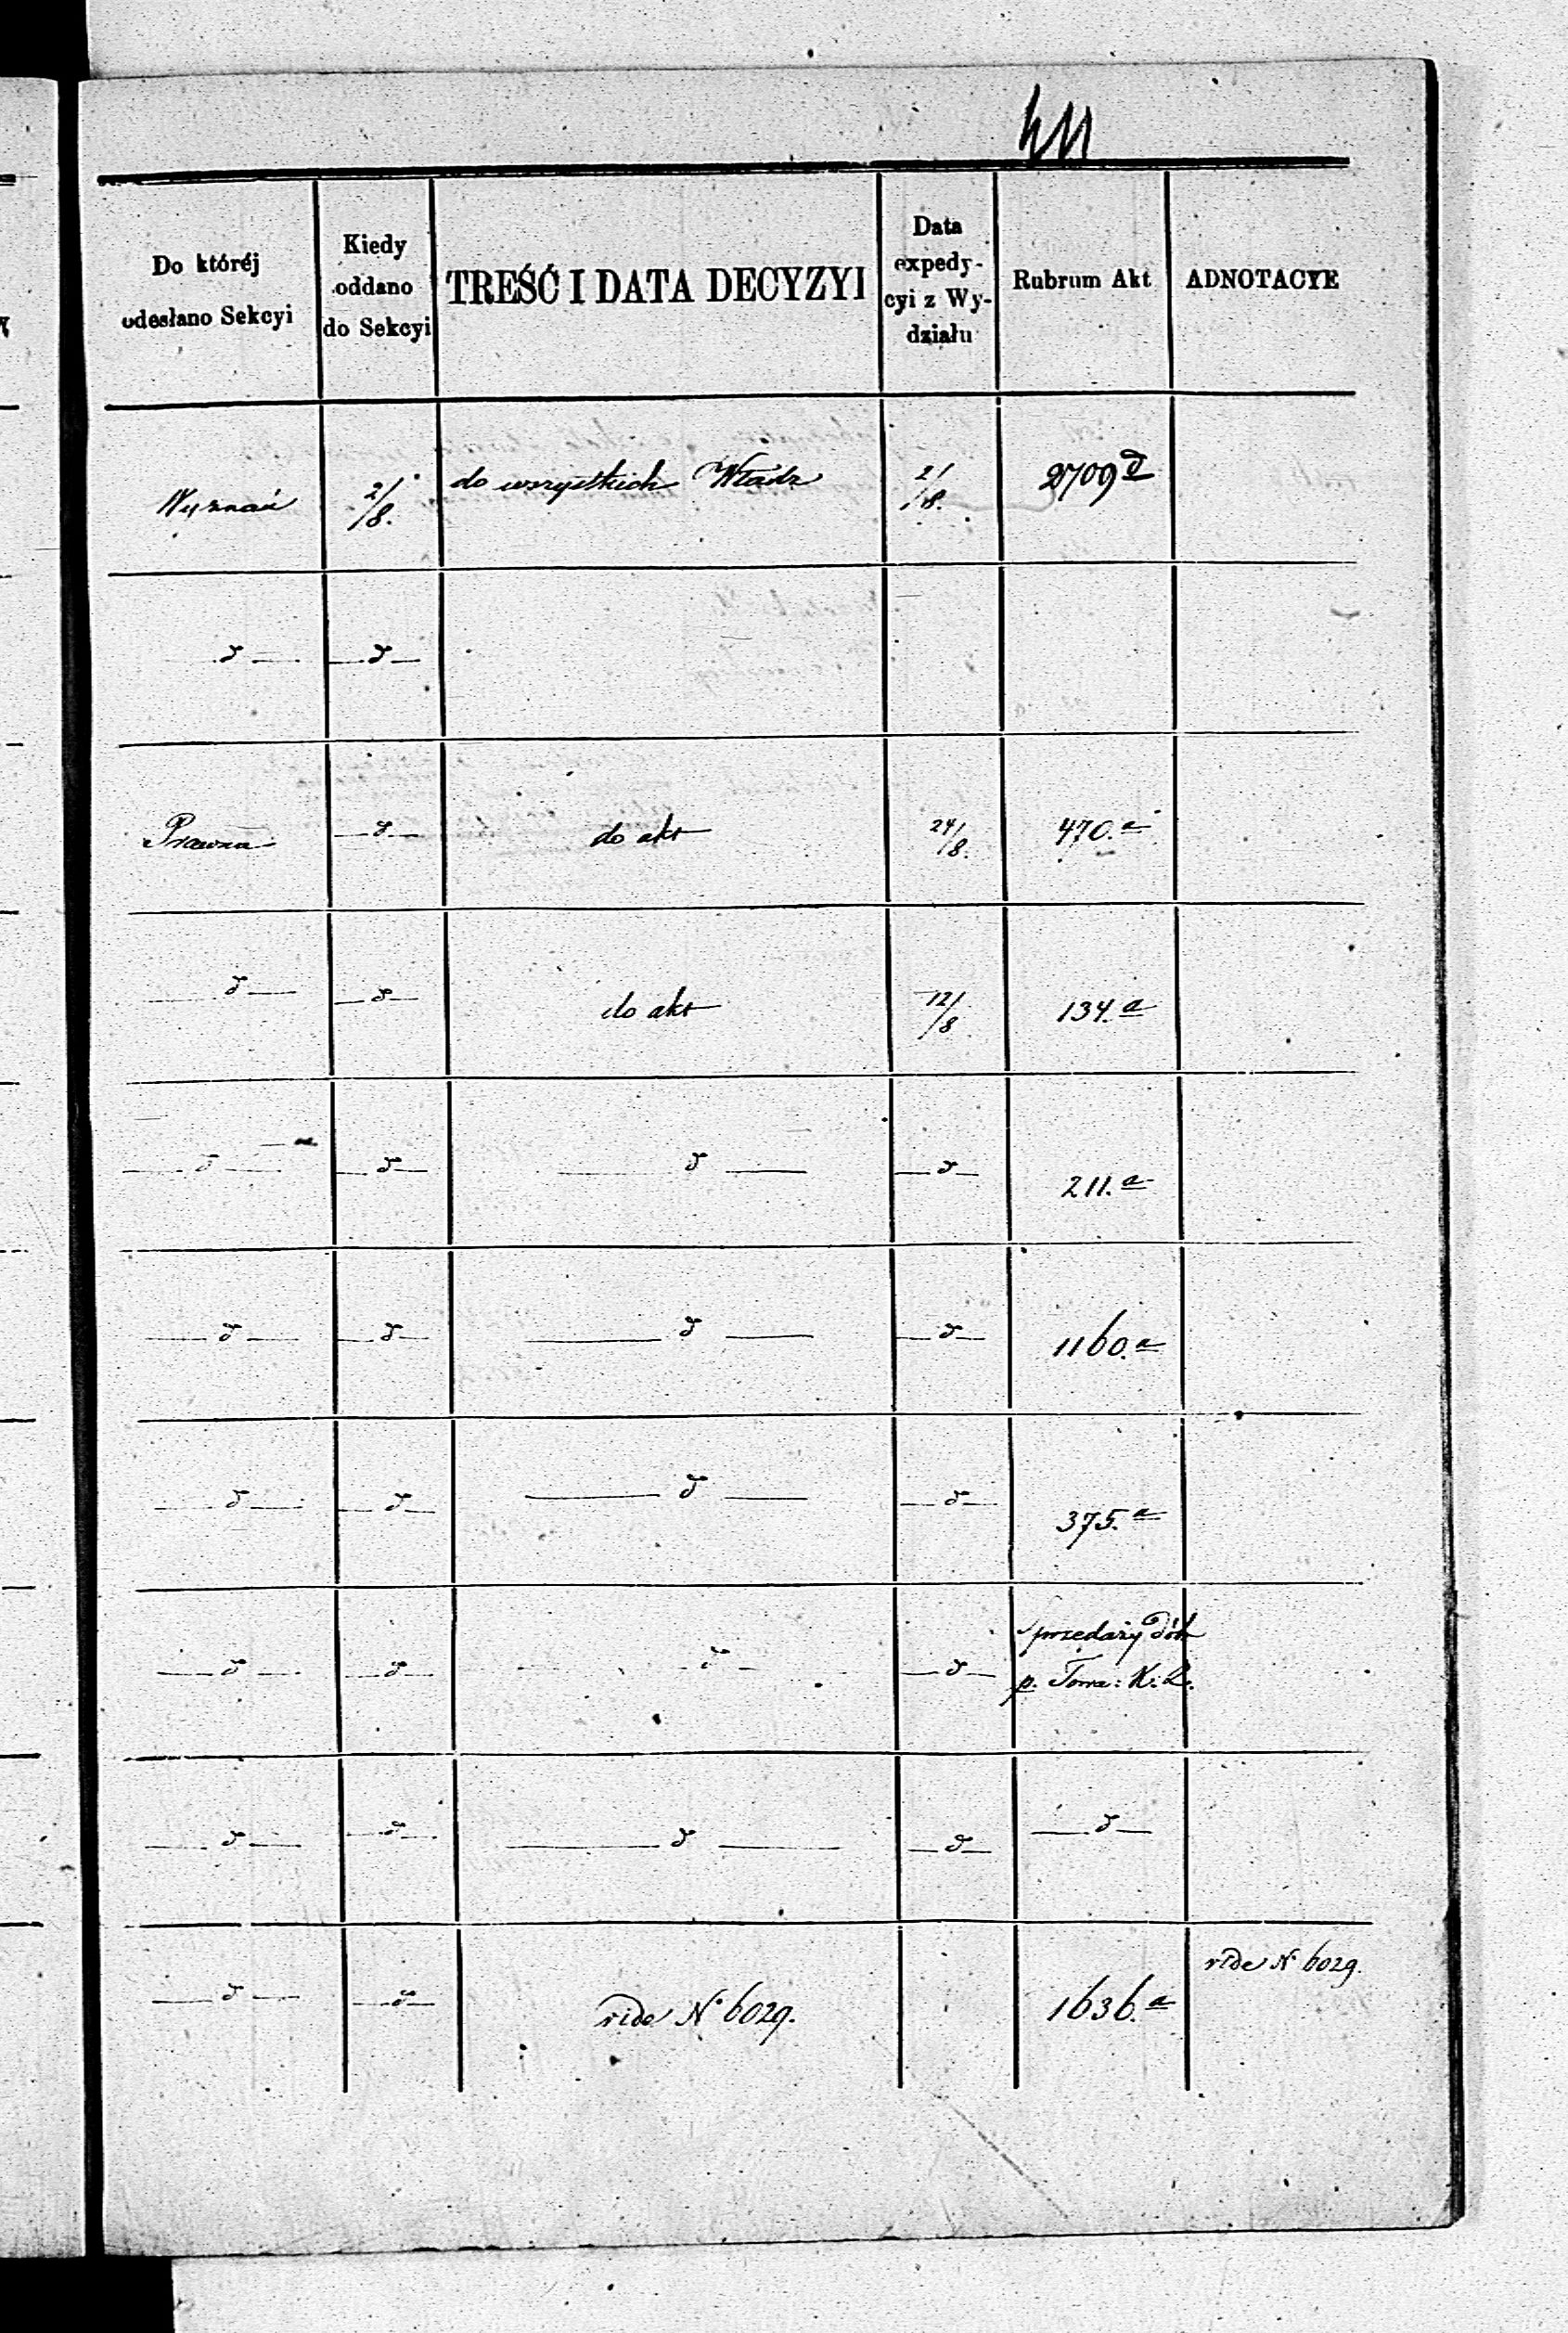 411
Do któréj odesłano Sekcyi | Kiedy oddano do Sekcyi | TREŚĆ I DATA DECYZYI | Data expedycyi z Wydziału | Rubrum Akt | ADNOTACYE
Wyznań | 2/8. | do wszystkich Władz | 2/8. | 2709 d
— d — | — d —
Prawna | — d — | do akt | 24/8. | 470. a
— d — | — d — | do akt | 12/8 | 134. a
— d — | — d — | — d — | — d — | 211. a
— d — | — d — | — d — | — d — | 1160. a
— d — | — d — | — d — | — d — | 375. a
— d — | — d — | — d — | — d — | sprzedaży Dób
p. K. L.
— d — | — d — | — d — | — d — | — d —
— d — | — d — | vide No 6029. | 1636. a | vide N 6029.